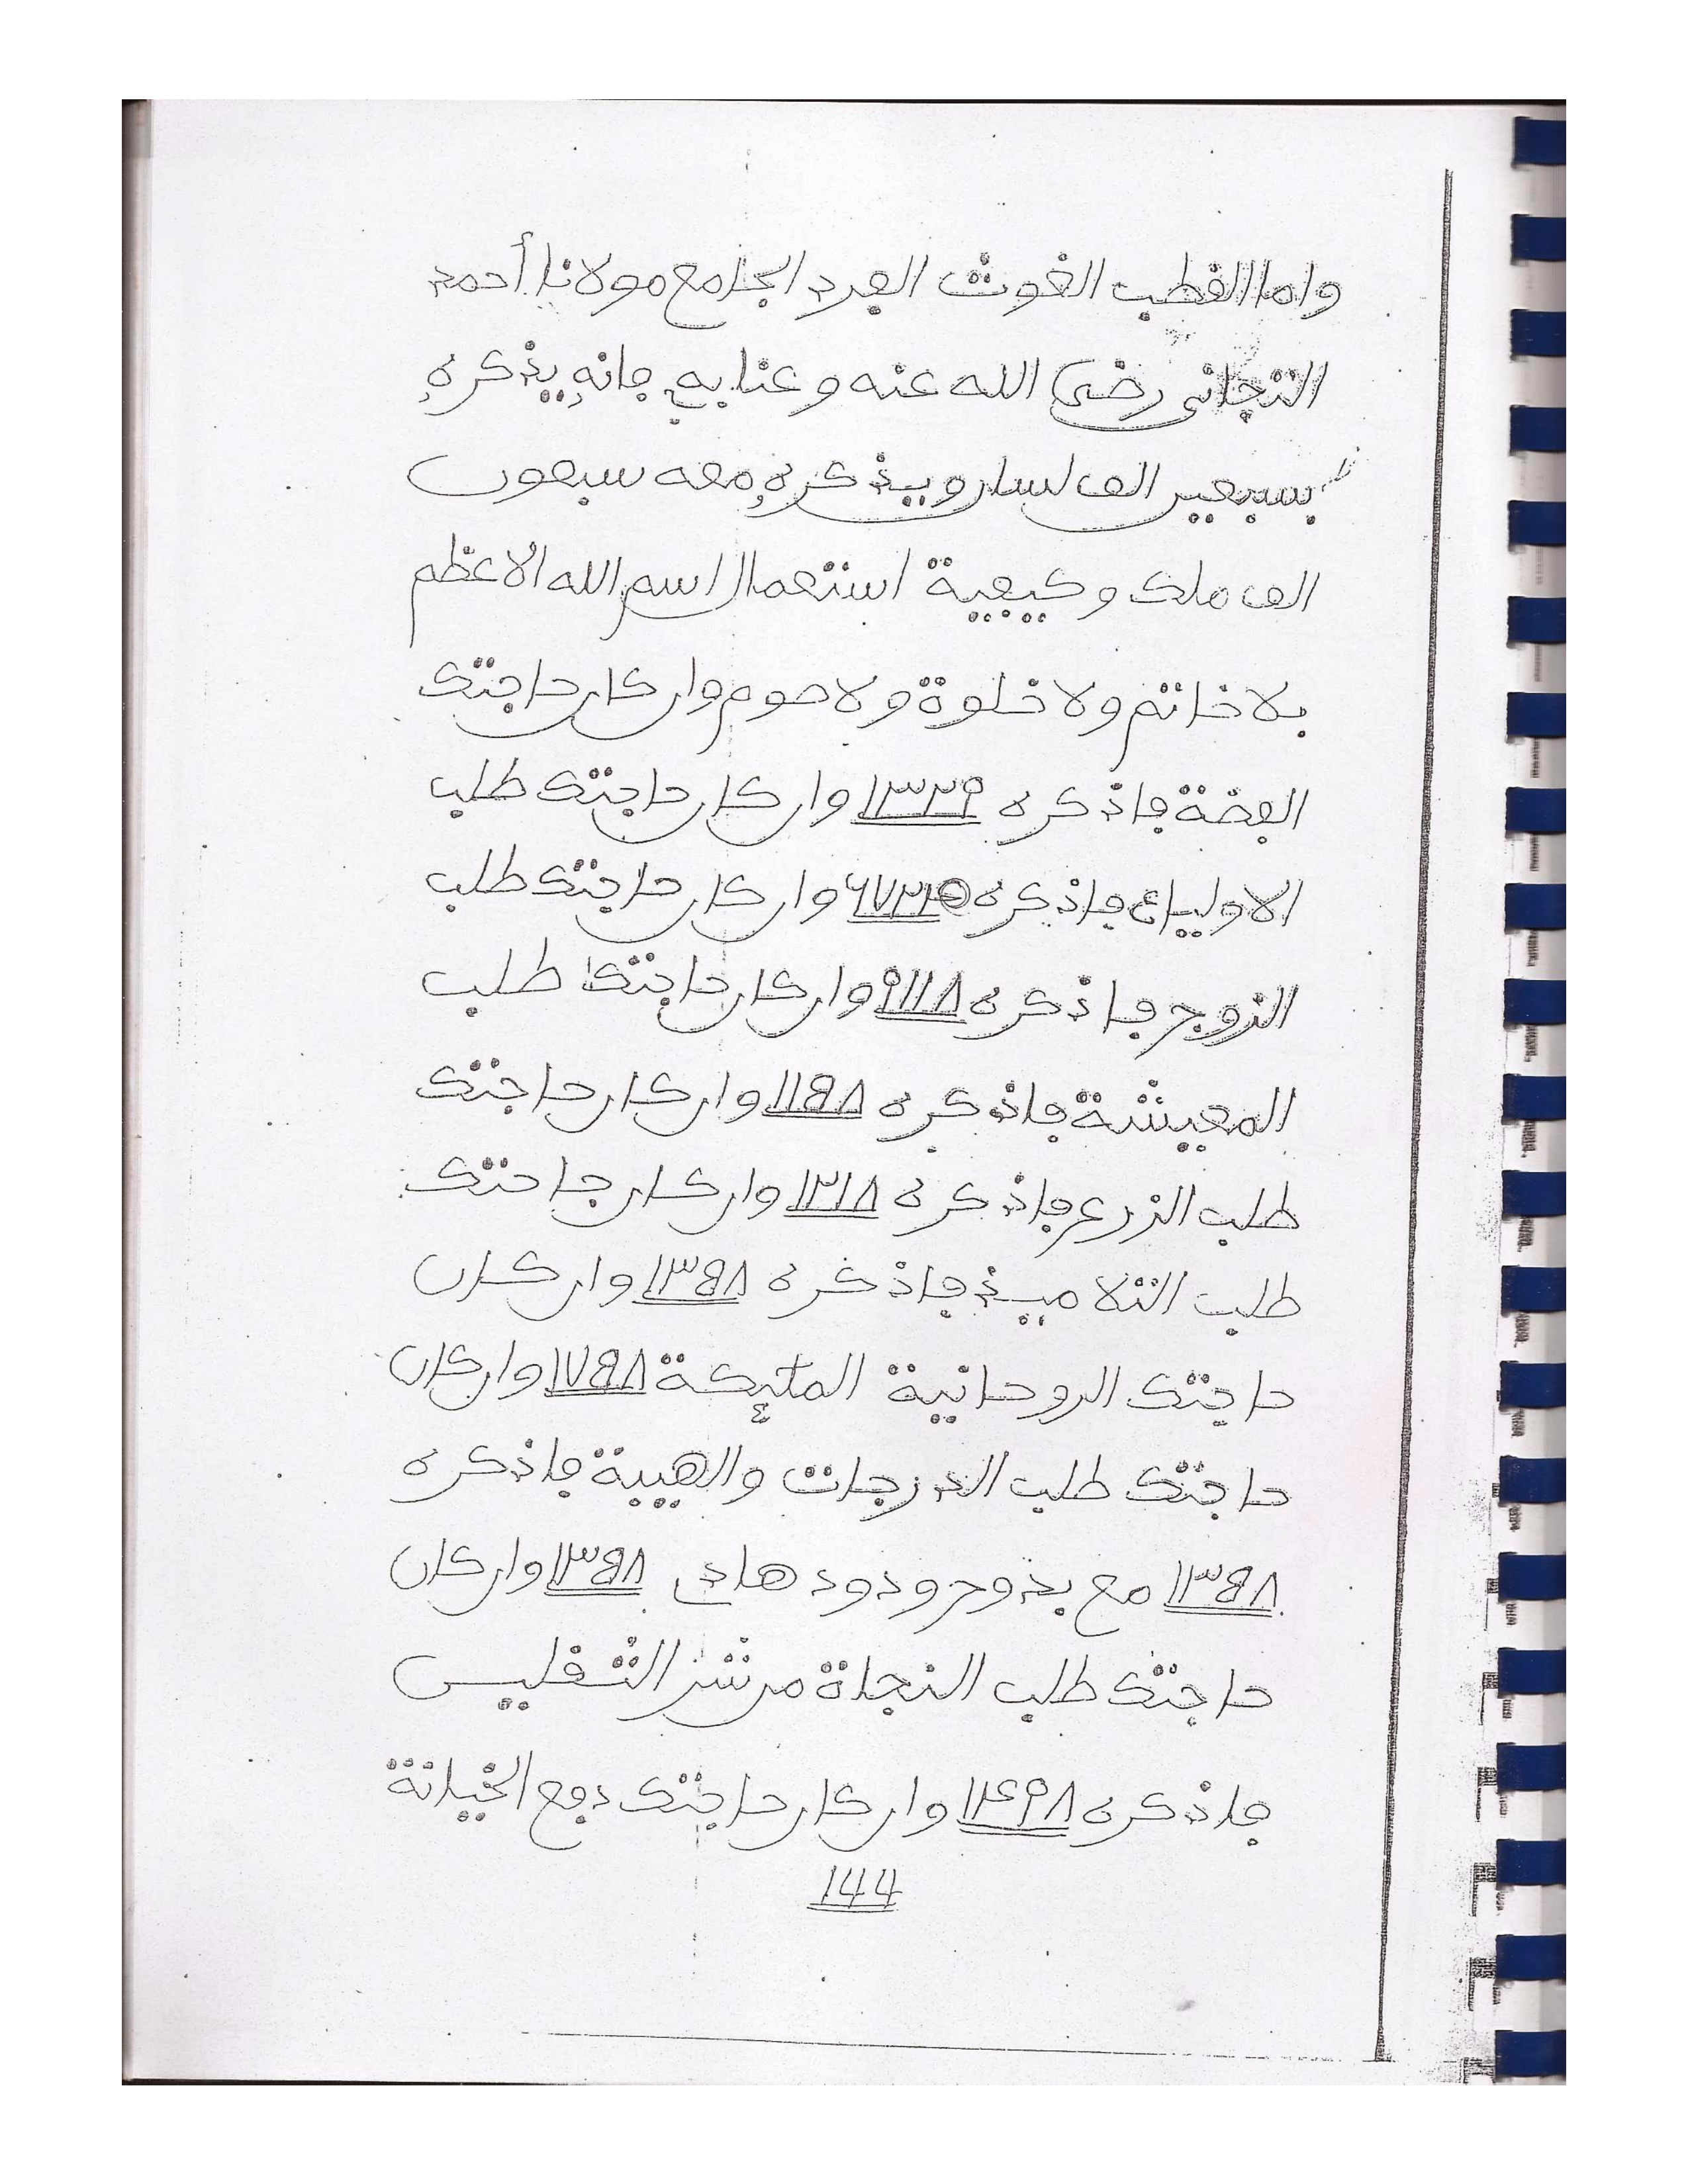 واما القطب الغوث الفرد الجامع مولانا أحمد
التجانى رضى الله عنه وعنا به فانه يذكره
بسبعين الف لسان ويذكره معه سبعون
الف ملك وكيفية استعمال اسم الله الاعظم
بلا خاتم ولا خلوة ولا صوم وان كان حاجتك
الفضة فاذكره ١٣٣٩ وان كان حاجتك طلب
الاولياء فاذكره وان كان حاجتك طلب
الزوج فاذكره ٩١١٨ وان كان حاجتك طلب
المعيشة فاذكره وان كان حاجتك
طلب الزرع فاذكره ١٢١٨ وان كان حاجتك
طلب التلاميذ فاذكره وان كان
حاجتك الروحانية الملئكة وان كان
حاجتك طلب الدرجات والهيبة فاذكره
مع بدوح ودود هادى وان كان
حاجتك طلب النجاة من شر الثقليس
فاذكره وان كان حاجتك دفع الخيانة
144